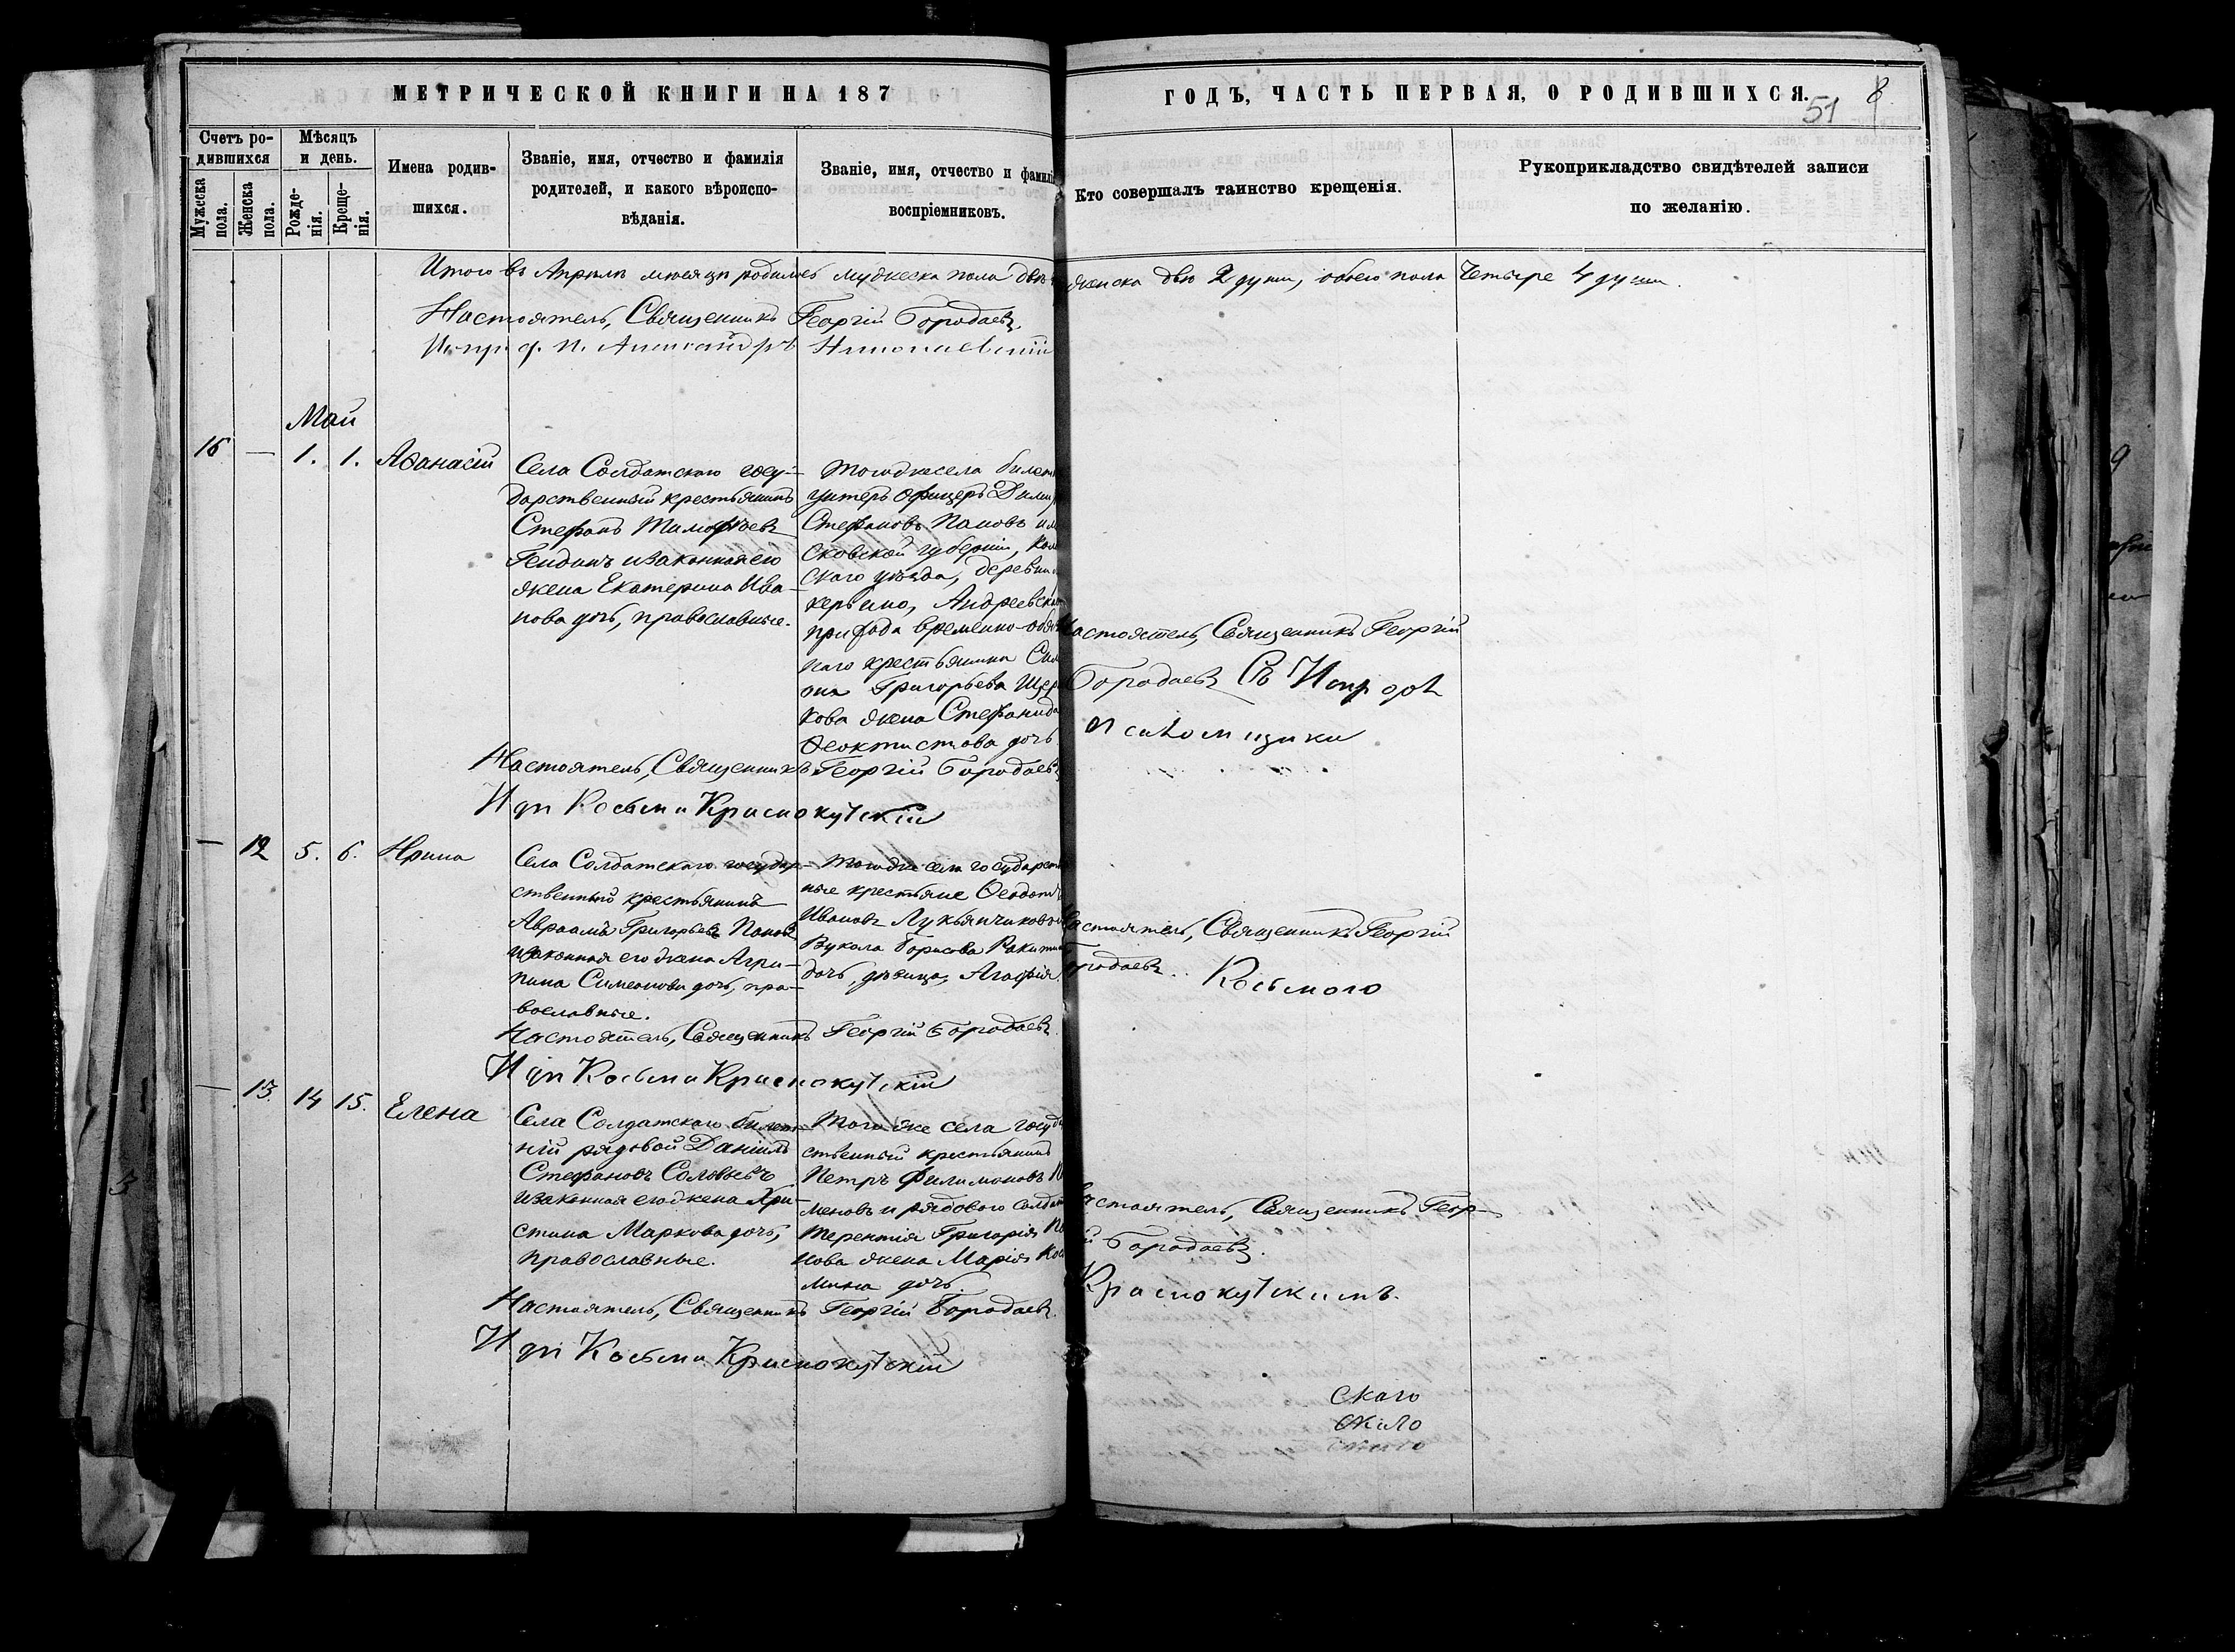 МЕТРИЧЕСКОЙ КНИГИ НА 187
ГОДЪ, ЧАСТЬ ПЕРВАЯ, О РОДИВШИХСЯ.
51
8
Счетъ ро-
дившихся
Мужеска
пола.
Женска
пола.
Мѣсяцъ
и день.
Рожде-
нія.
Креще-
нія.
Имена родив-
шихся.
Званіе, имя, отчество и фамилія
родителей, и какого вѣроиспо-
вѣданія.
Званіе, имя, отчество и фамилі
воспріемниковъ.
Кто совершалъ таинство крещенія.
Рукоприкладство свидѣтелей записи
по желанію.
Итого въ Апрѣлѣ мѣсяцѣ родилось мужеска пола двѣ
женска двѣ 2 души, обоего пола четыре 4 души.
Настоятель, Священникъ Георгій Бородаевъ
Александръ Николаевскій
Май
16 — 1. 1. Аѳанасій
Села Солдатскаго госу-
дарственный крестьянинъ
Стефанъ Тимофѣевъ
изаконная его
жена Екатерина Ива-
нова дочь, православные.
Тогожесела билет
унтеръ офицеръ
Стефановъ Пановъ
сковской губерніи, Кол
скаго уѣзда, деревни
Андреевска
прихода временно-обяз
наго крестьянина Сим
она Григорьева Щер
кова жена Стефанида
Ѳеоктистова дочь
Настоятель, Священникъ Георгій
Бородаевъ Съ
псаломщики
Настоятель, Священникъ Георгій Бородаевъ
И дп Косьма Краснокутскій
— 12 5. 6. Ирина
Села Солдатскаго государ-
ственный крестьянинъ
Авраамъ Григорьевъ Пановъ
изаконная его жена Агри-
пина Симеонова дочь, пра-
вославные.
Тогоже села государст
ные крестьяне Ѳеодотъ
Ивановъ Лукьянчиковъ
Вукола Борисова Ракитин
дочь, дѣвица, Агафія
Настоятель, Священникъ Георгій
Бородаевъ.
Косьмого
Настоятель, Священникъ Георгій Бородаевъ
И дп Косьма Краснокутскій
— 13. 14 15. Елена
Села Солдатскаго билет-
ній рядовой Даніилъ
Стефановъ Соловьевъ
изаконная его жена Хри-
стина Маркова дочь,
православные.
Того же села госуда
ственный крестьянинъ
Петръ Филимоновъ
меновъ и рядового солдат
Терентія Григорія По
нова жена Марія Коз
мина дочь
Настоятель, Священникъ Геор-
й Бородаевъ.
Краснокутскимъ.
Настоятель, Священникъ Георгій Бородаевъ.
И дп Косьма Краснокутскій
скаго
скаго
скаго